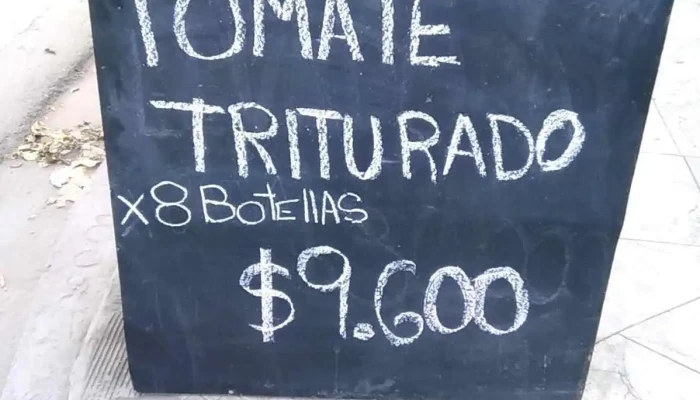 TOMATE
TRITURADO
x8 BOTELLAS
$9.600